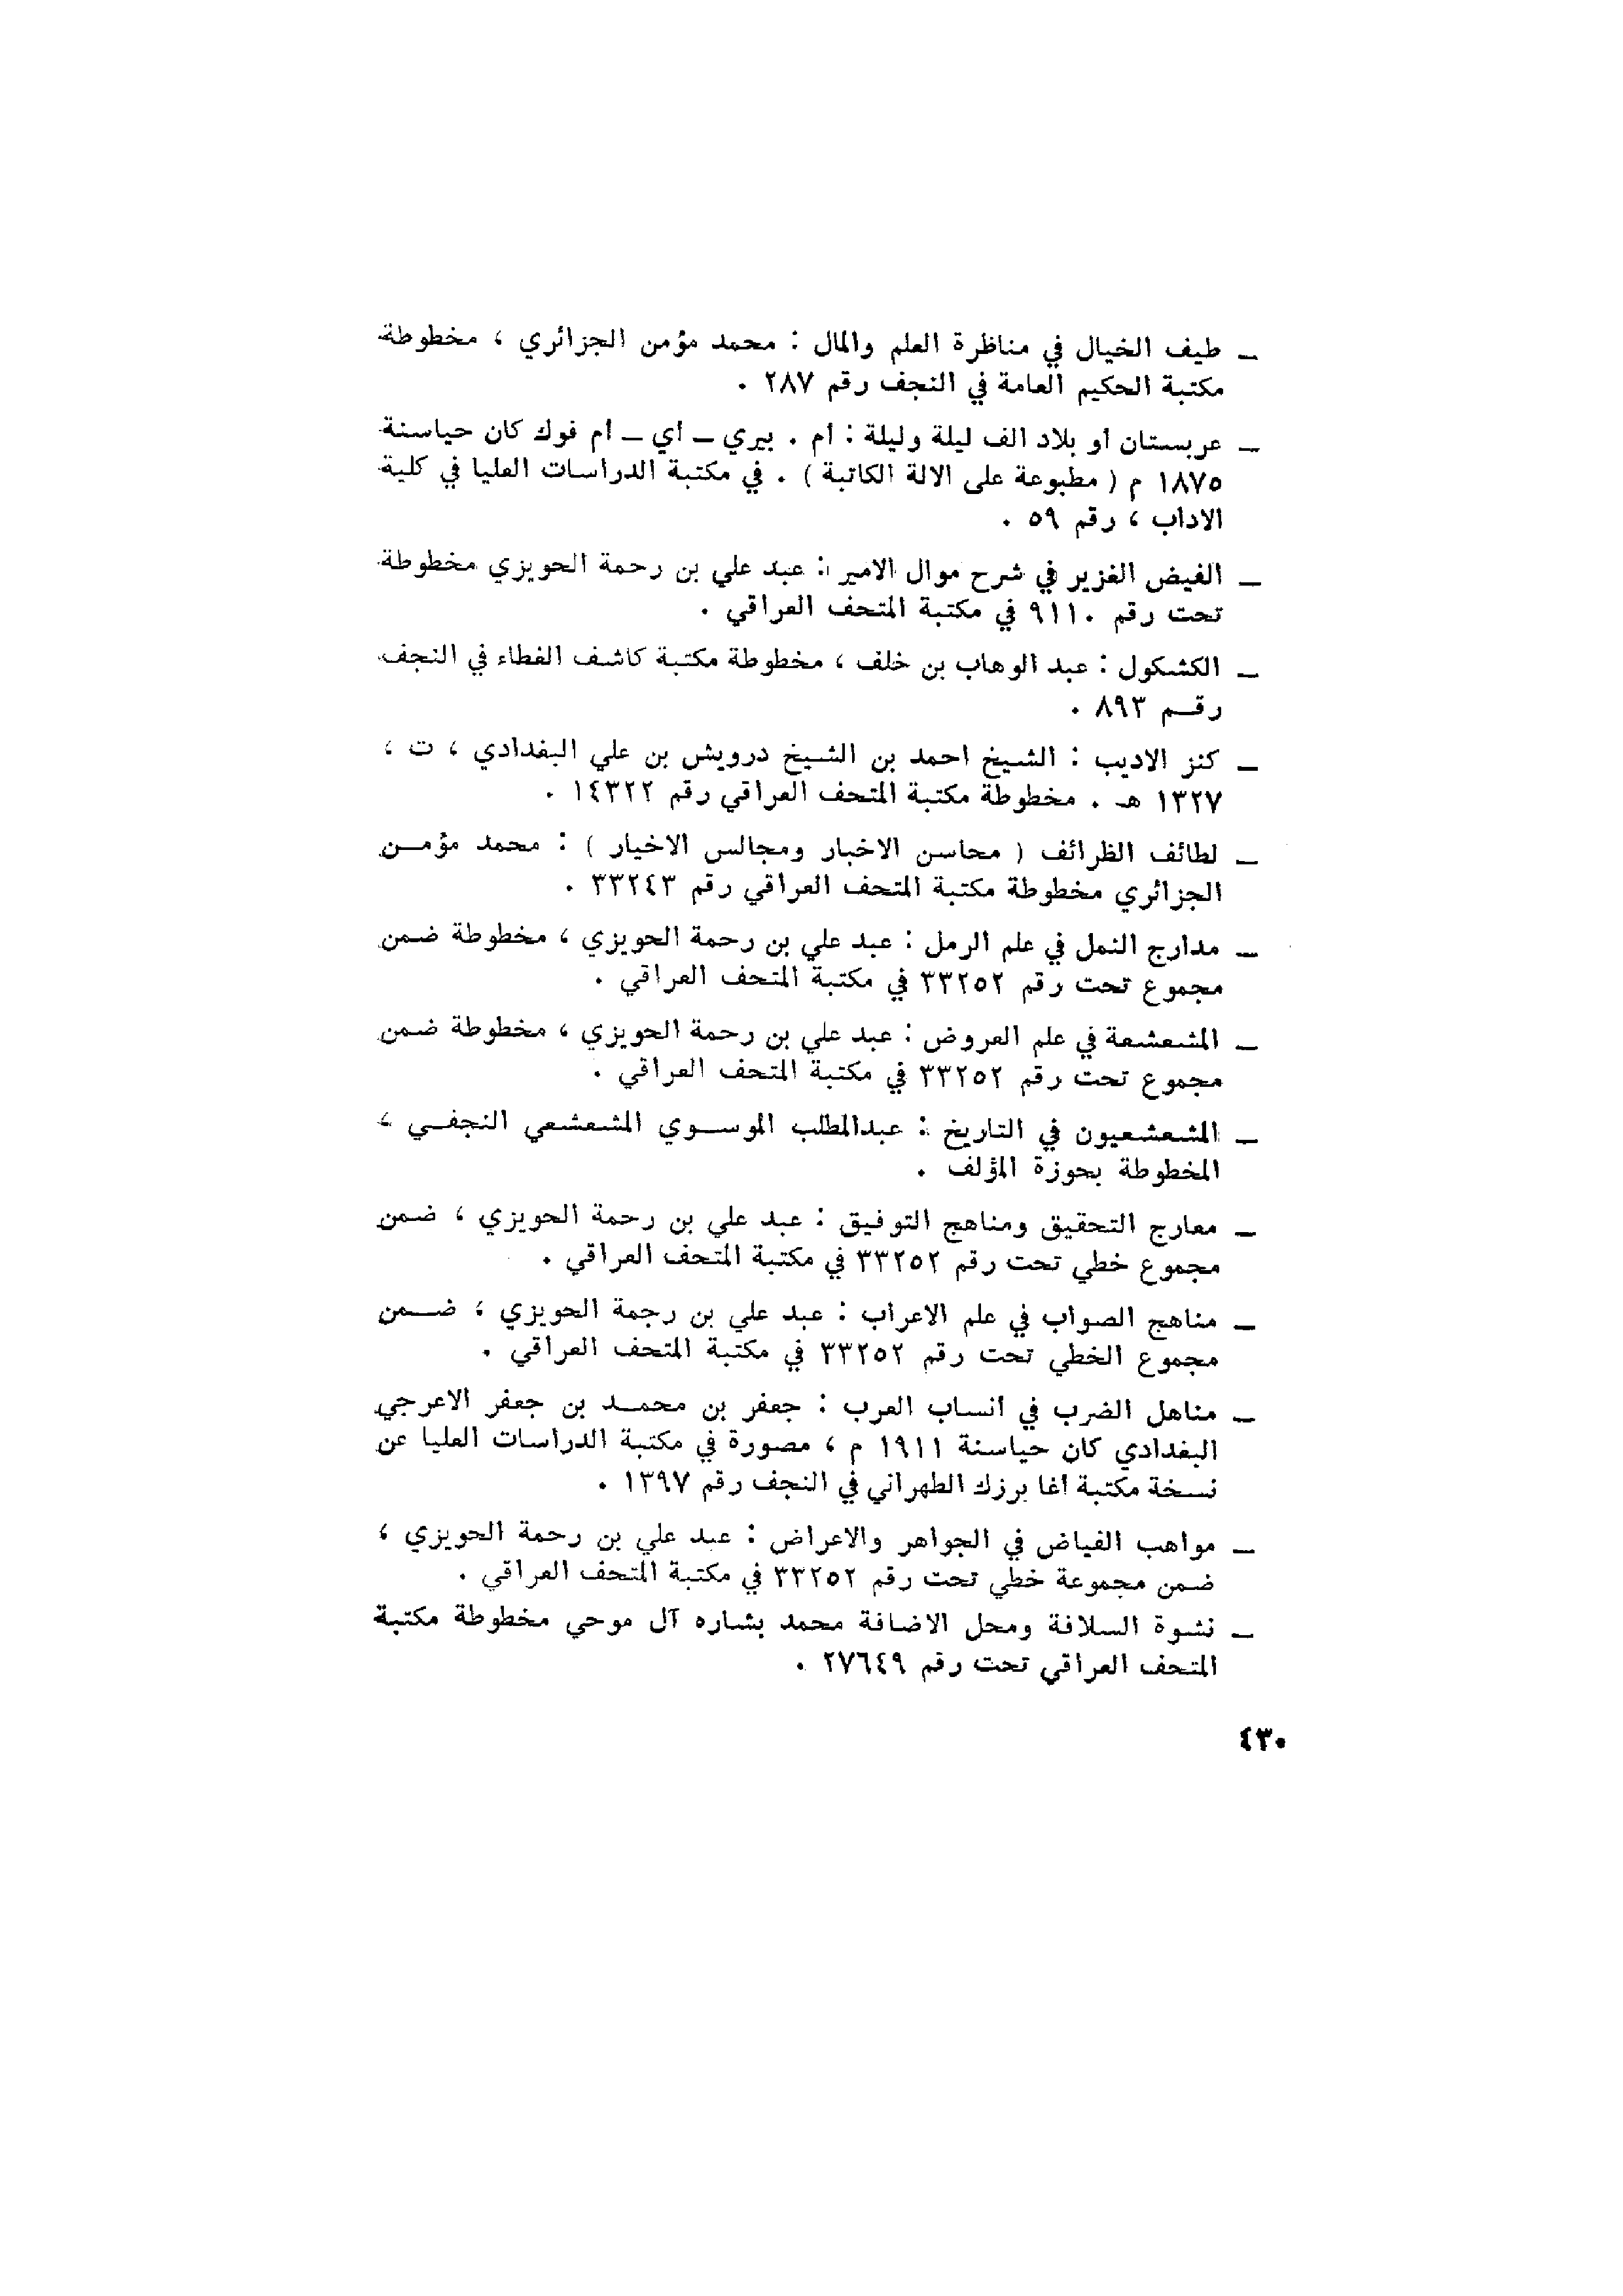 ـ طيف الخيال في مناظرة العلم والمال : محمد مؤمن الجزائري ، مخطوطة
مكتبة الحكيم العامة في النجف رقم ٢٨٧ .
ـ عربستان أو بلاد الف ليلة وليلة : أم . بيري ـ أي ـ أم فوك كان حياسنة
١٨٧٥ م ( مطبوعة على الالة الكاتبة ) . في مكتبة الدراسات العليا في كلية
الاداب ، رقم ٥٩ .
ـ الفيض الغزير في شرح موال الامير : عبد علي بن رحمة الحويزي مخطوطة
تحت رقم ٩١١٠ في مكتبة المتحف العراقي .
ـ الكشكول : عبد الوهاب بن خلف ، مخطوطة مكتبة كاشف الغطاء في النجف
رقــم ٨٩٣ .
ـ كنز الاديب : الشيخ احمد بن الشيخ درويش بن علي البغدادي ، ت ،
١٣٢٧ هـ . مخطوطة مكتبة المتحف العراقي رقم ١٤٣٢٢ .
ـ لطائف الظرائف ( محاسن الاخبار ومجالس الاخيار ) : محمد مؤمــن
الجزائري مخطوطة مكتبة المتحف العراقي رقم ٣٣٢٤٣ .
ـ مدارج النمل في علم الرمل : عبد علي بن رحمة الحويزي ، مخطوطة ضمن
مجموع تحت رقم ٣٣٢٥٢ في مكتبة المتحف العراقي .
ـ المشعشعة في علم العروض : عبد علي بن رحمة الحويزي ، مخطوطة ضمن
مجموع تحت رقم ٣٣٢٥٢ في مكتبة المتحف العراقي .
ـ المشعشعيون في التاريخ : عبدالمطلب الموســوي المشعشعي النجفــي ،
المخطوطة بحوزة المؤلف .
ـ معارج التحقيق ومناهج التوفيق : عبد علي بن رحمة الحويزي ، ضمن
مجموع خطي تحت رقم ٣٣٢٥٢ في مكتبة المتحف العراقي .
ـ مناهج الصواب في علم الاعراب : عبد علي بن رجمة الحويزي ، ضــمن
مجموع الخطي تحت رقم ٣٣٢٥٢ في مكتبة المتحف العراقي .
ـ مناهل الضرب في أنساب العرب : جعفر بن محمــد بن جعفر الاعرجي
البغدادي كان حياسنة ١٩١١ م ، مصورة في مكتبة الدراسات العليا عن
نسخة مكتبة أغا برزك الطهراني في النجف رقم ١٣٩٧ .
ـ مواهب الفياض في الجواهر والاعراض : عبد علي بن رحمة الحويزي ،
ضمن مجموعة خطي تحت رقم ٣٣٢٥٢ في مكتبة المتحف العراقي .
ـ نشوة السلافة ومحل الاضافة محمد بشاره آل موحي مخطوطة مكتبة
المتحف العراقي تحت رقم ٢٧٦٤٩ .
٤٣٠